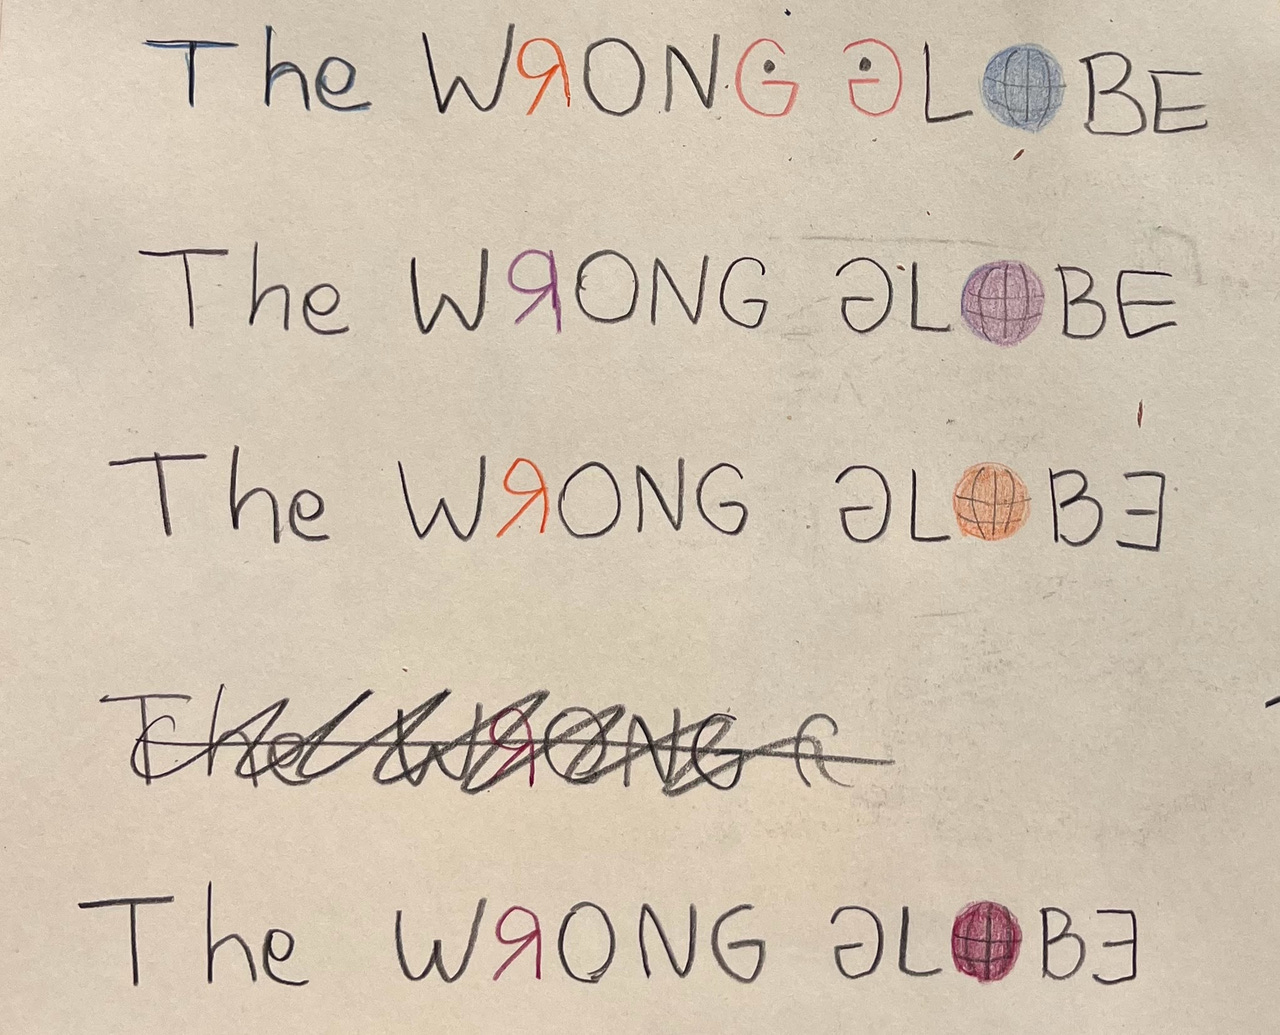 The WЯONG GLOBE
The WЯONG GLOBE
The WЯONG GLOBƎ
The WЯONG G
The WЯONG GLOBƎ